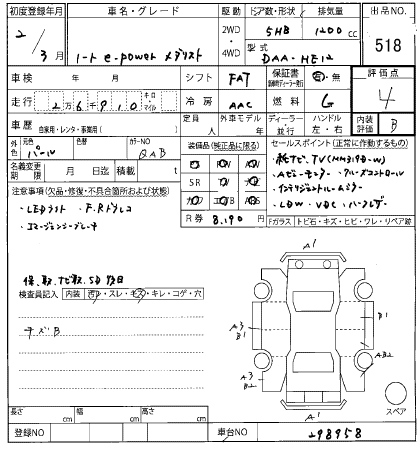 初度登録年月 車名・グレード 駆動 ドア数・形状 排気量 出品NO.
2年 3月 ノート e-power メダリスト 2WD・4WD 5HB 1200cc 518
型式 DAA-HE12
車検 年 月 シフト FAT 保証書 有・無 評価点 4
走行 2万6千910 キロ・マイル 冷房 AAC 燃料 G
車歴 自家用・レンタ・事業用( ) 定員 人 外車モデル 年 ディーラー・並行 ハンドル 左・右 内装評価 B
外色 元色 パール 色替 カラーNO QAB
装備品(純正品に限る) セールスポイント(正常に作動するもの)
名義変更期限 月 日迄 積載 t
SR
・純ナビ、TV(MM319D-W)
・Aビューモニター ・クルーズコントロール
・インテリジェントルームミラー
・LDW ・VDC ・
注意事項(欠品・修復・不具合箇所および状態)
・LEDライト ・F.Rドラレコ
・エマージェンシーブレーキ
R券 8,190円
Fガラス トビ石・キズ・ヒビ・ワレ・リペア跡
保、取、ナビ取、SD後日
検査員記入 内装 汚レ・スレ・キズ・キレ・コゲ・穴
キズB
A1
A3
B1
B1
AB2
A3
B2
A1
スペア
長さ cm 幅 cm 高さ cm
登録NO 車台NO 298958